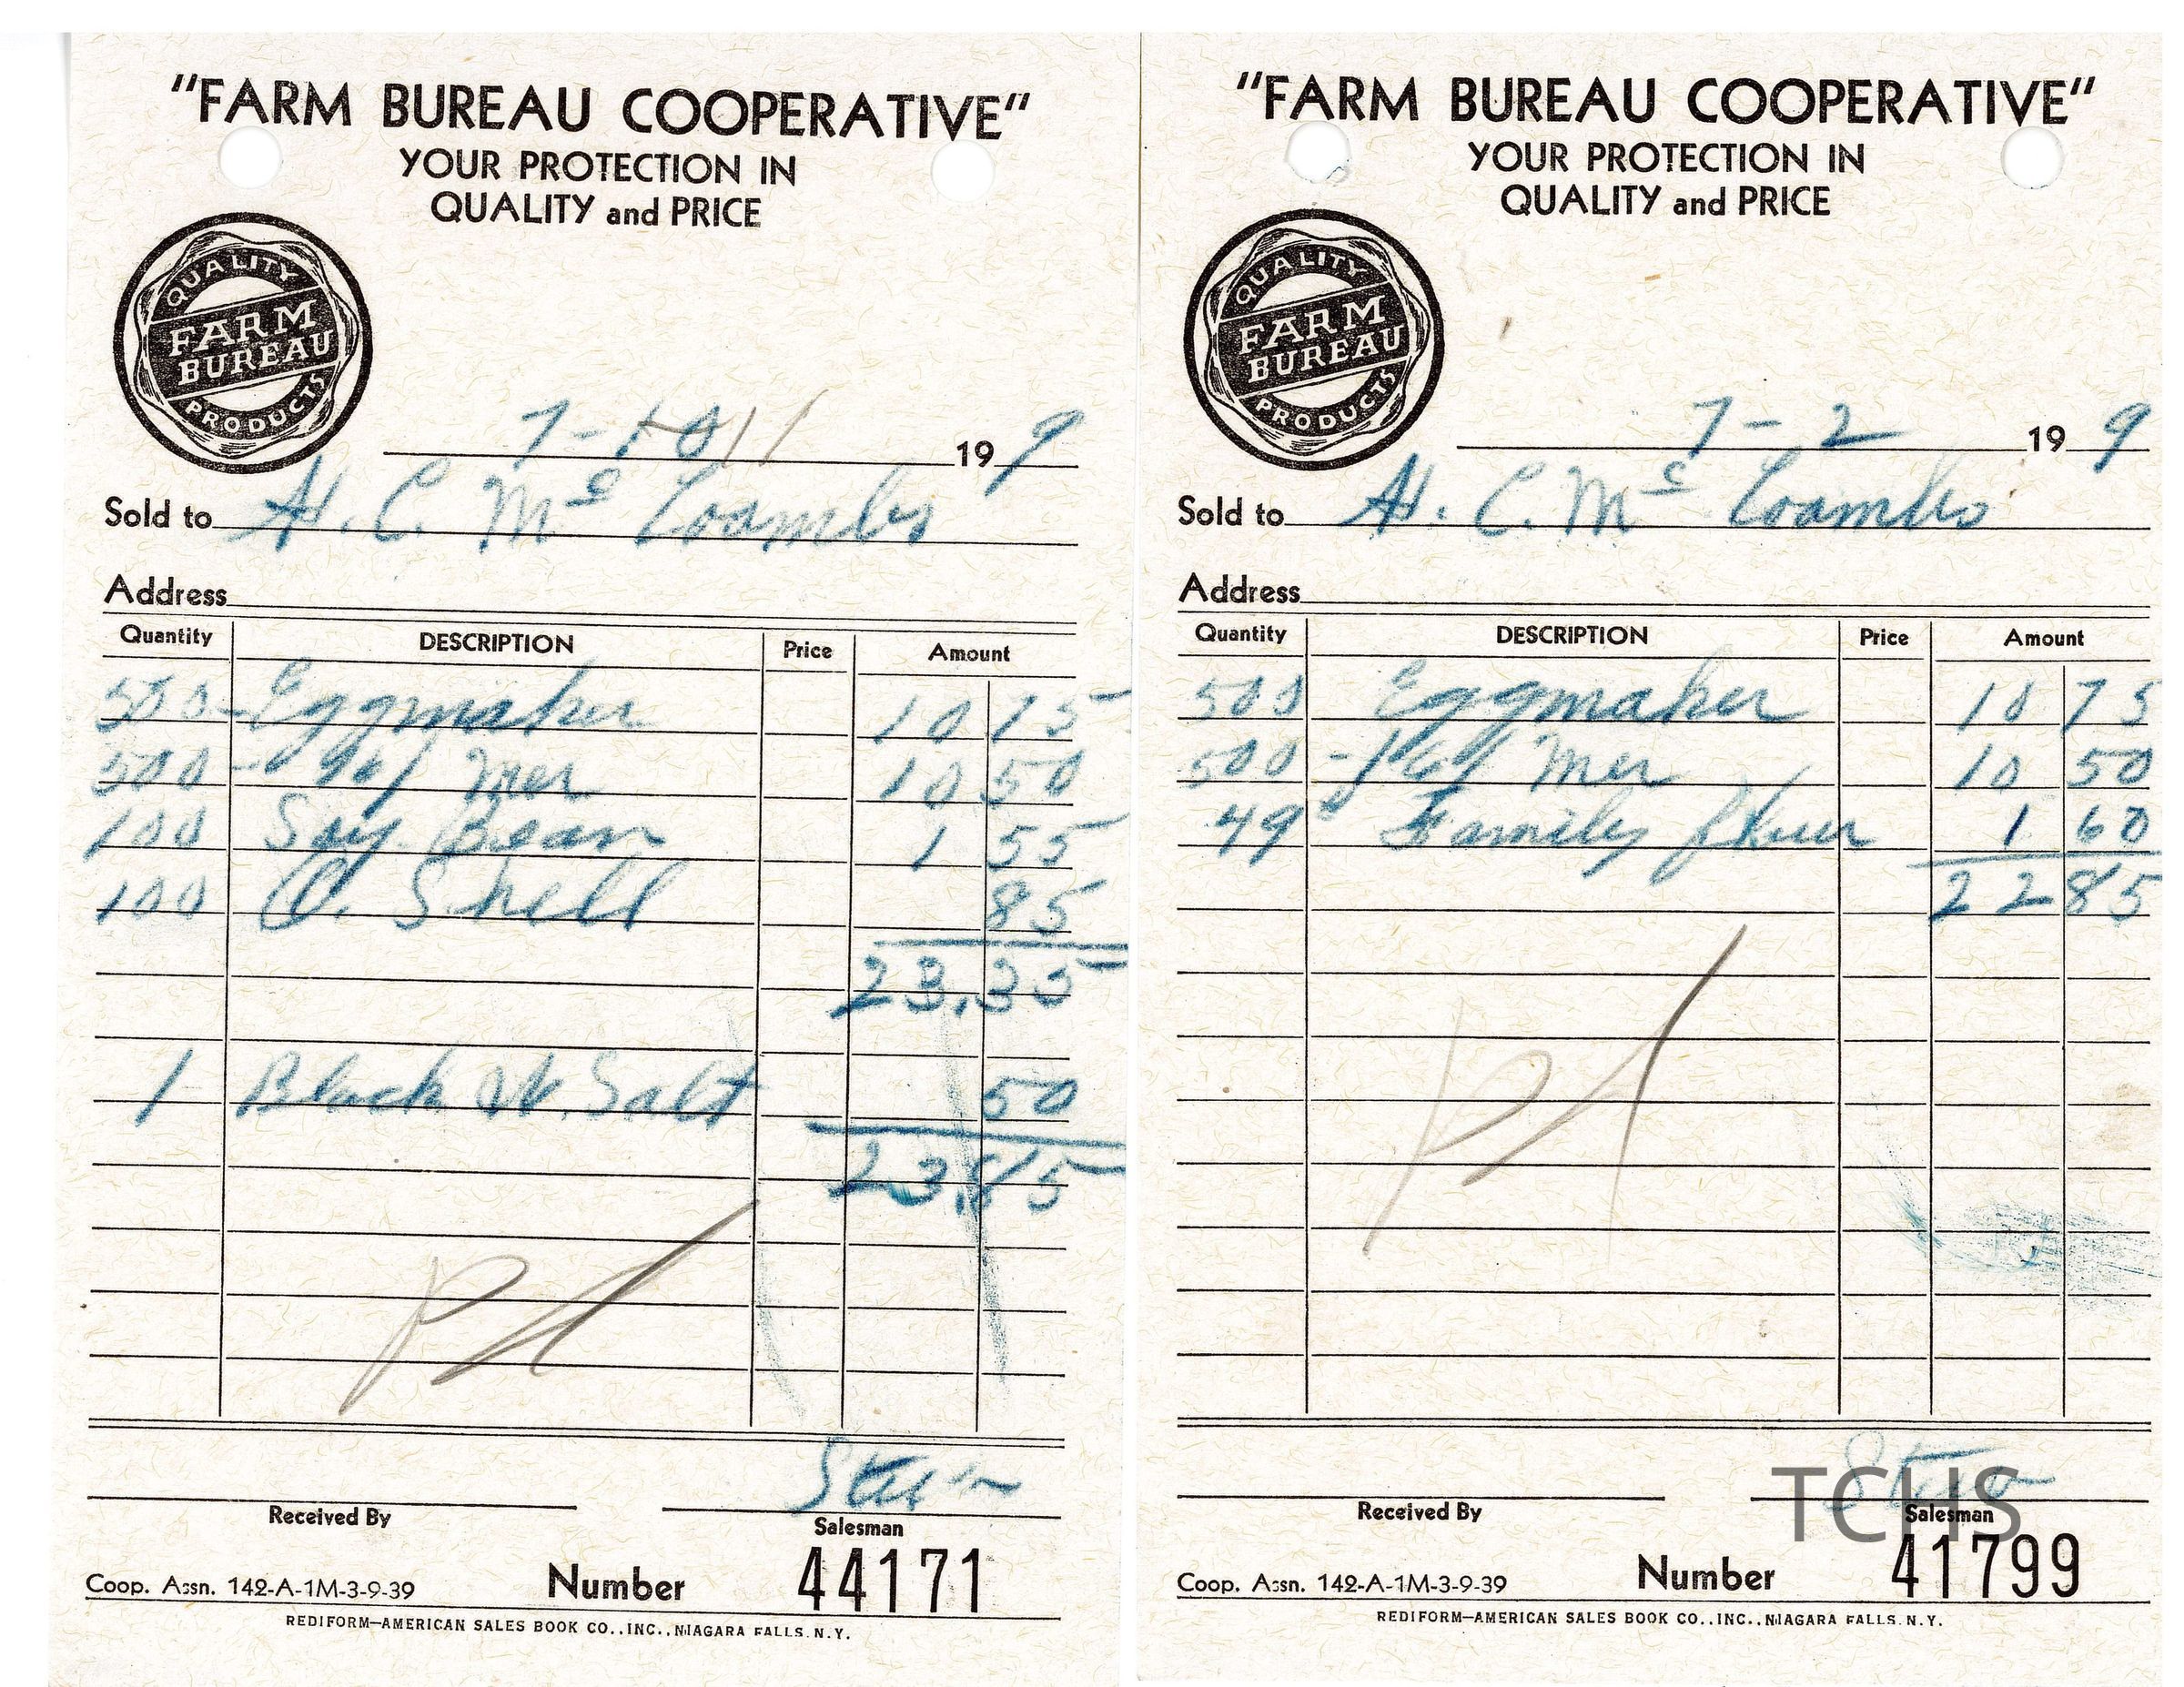 "FARM BUREAU COOPERATIVE"
YOUR PROTECTION IN
QUALITY and PRICE
QUALITY
FARM
BUREAU
PRODUCTS
7-10 11 19 9
Sold to H. C. Mc Coambs
Address
Quantity DESCRIPTION Price Amount
500 - Eggmaker 10 75
500 - Mer 10 50
100 Soy Bean 1 55
100 O. Shell 85
23.35
1 Black W. Salt 50
23.85
Received By
Salesman
Coop. Assn. 142-A-1M-3-9-39 Number 44171
REDIFORM—AMERICAN SALES BOOK CO., INC., NIAGARA FALLS. N.Y.
"FARM BUREAU COOPERATIVE"
YOUR PROTECTION IN
QUALITY and PRICE
QUALITY
FARM
BUREAU
PRODUCTS
7-2 19 9
Sold to H. C. Mc Coambs
Address
Quantity DESCRIPTION Price Amount
500 Eggmaker 10 75
500 - Mer 10 50
49 Family flour 1 60
22 85
TCHS
Received By
Salesman
Coop. Assn. 142-A-1M-3-9-39 Number 41799
REDIFORM—AMERICAN SALES BOOK CO., INC., NIAGARA FALLS. N.Y.